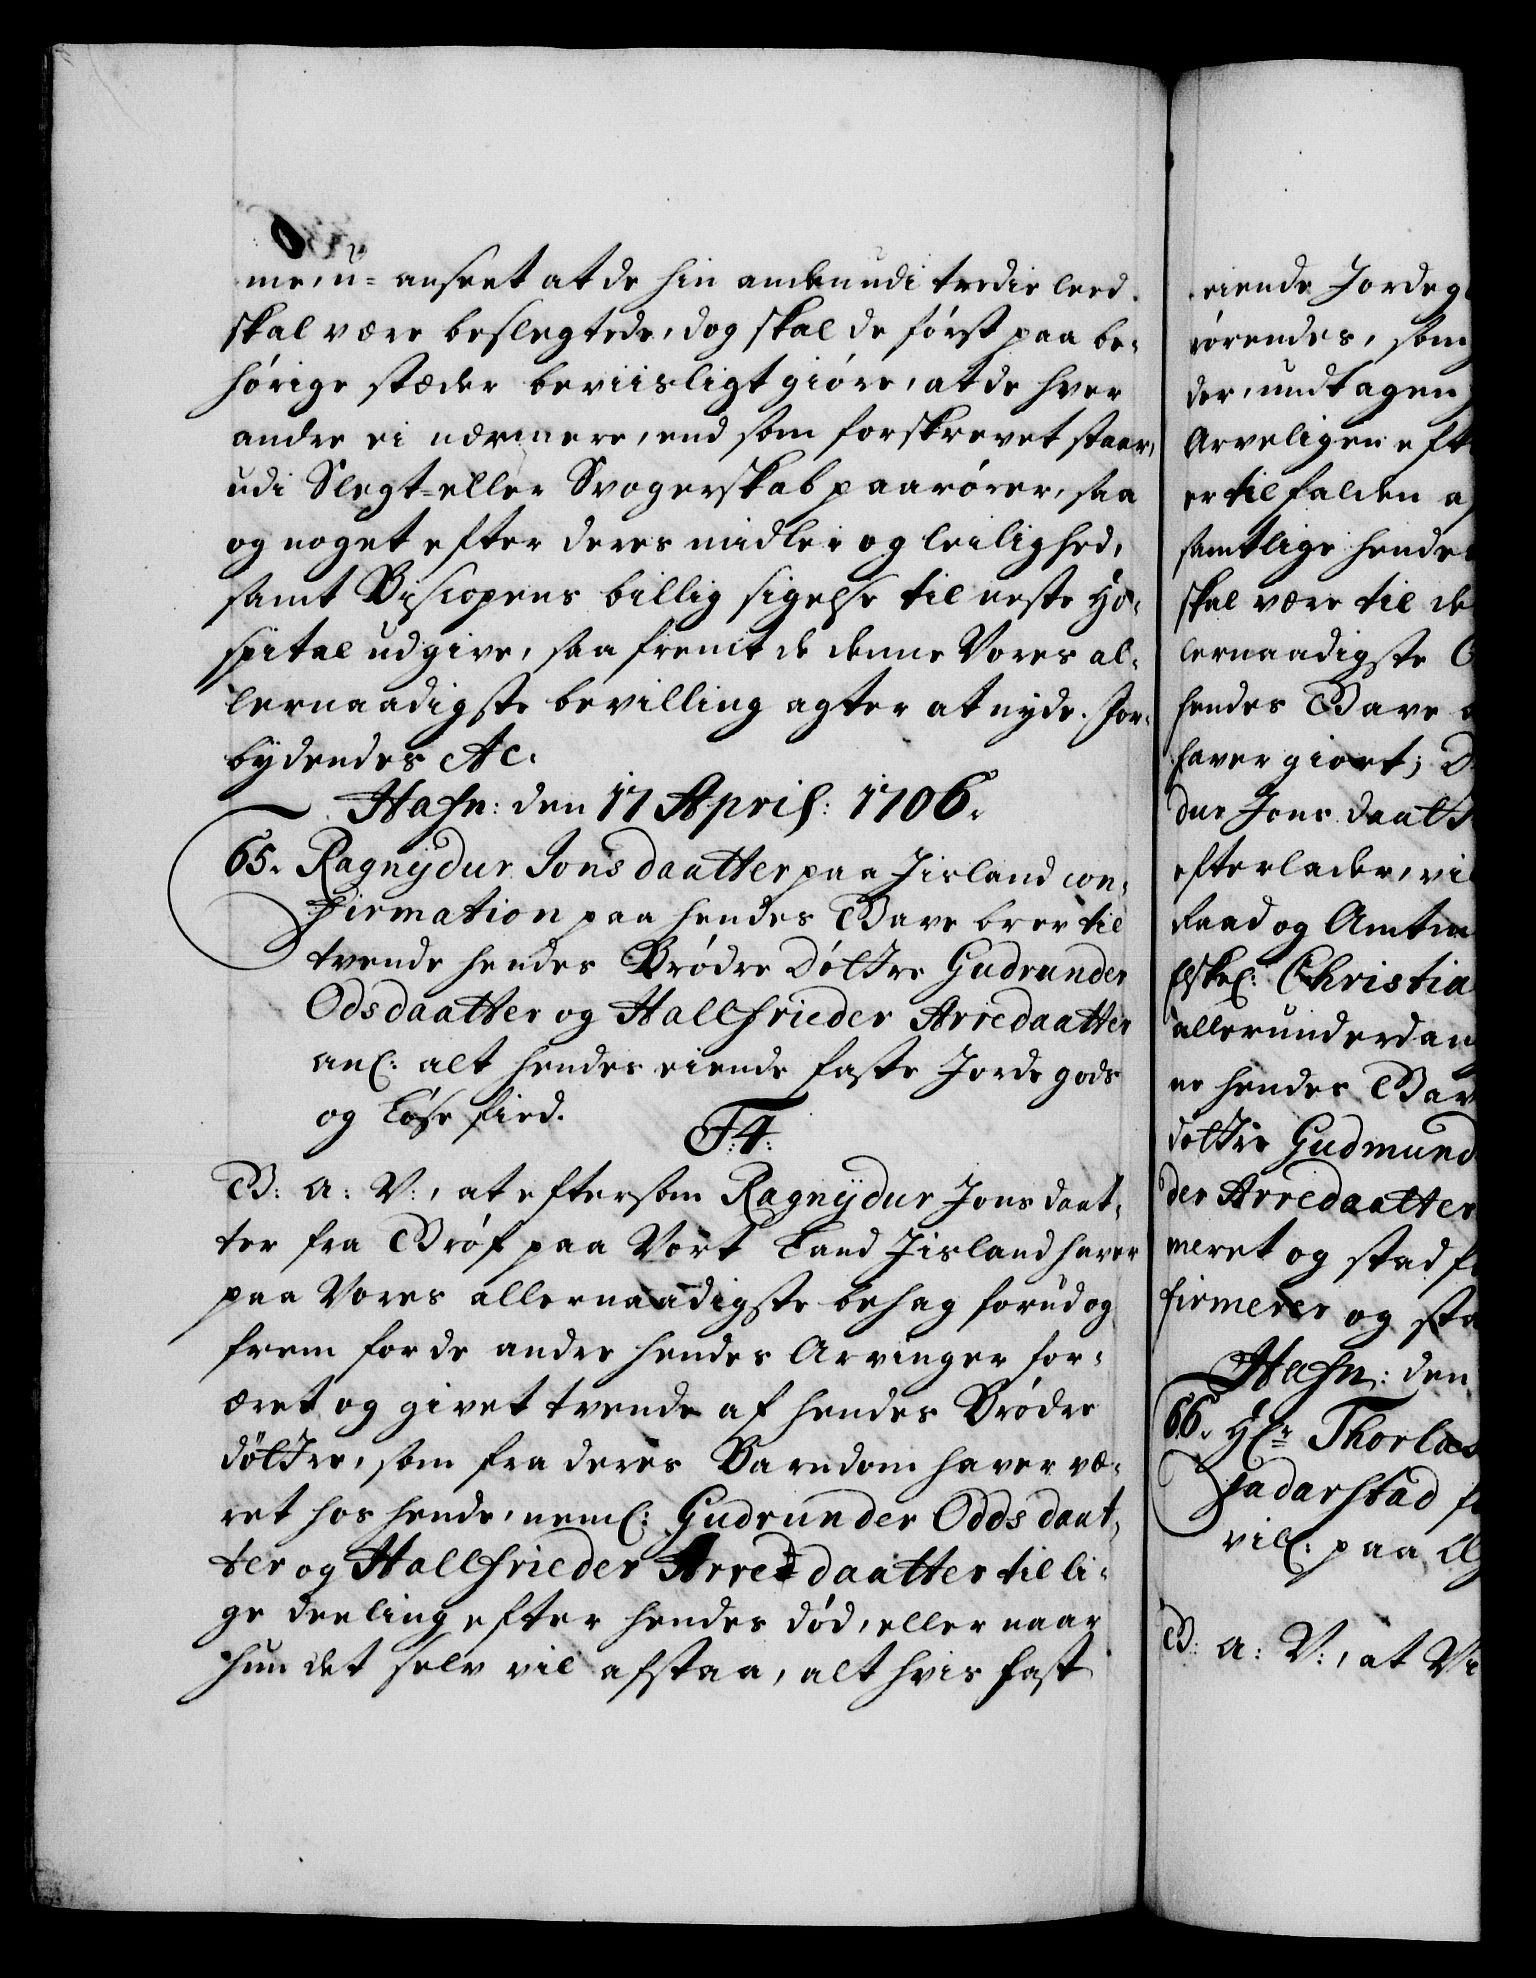 me, u=anseet at de hin anden udi tredie leed
skal være beslegtede, dog skal de først paa be-
hørige stæder beviisligt giøre, at de hver
andre ei nærmere, end som forskrevet staar,
udi Slegt=eller Svogerskab paarører, saa
og noget efter deres midler og leilighed,
samt Biscopens billig sigelse til neste Ho-
spital udgive, saafremt de denne Vores al-
lernaadigste bevilling agter at nyde. For-
bydendes &c.
Hafn: den 17 April: 1706.
65. Ragnydur Jons daatter paa Jisland con-
firmation paa hendes Gave brev til
tvende hendes Brødre døttre Gudrunder
Odsdaatter og Hallfrieder Arredaatter
anl: alt hendes eiende faste Jorde gods
og Løse fied.
F: 4:
B: A: V:, at eftersom Ragnydur Jons daat-
ter fra Grøf paa Vort Land Jisland haver
paa Vores allernaadigste behag forud og
frem for de andre hendes Arvinger for-
æret og givet tvende af hendes Brødre
døttre, som fra deres Barndom haver væ-
ret hos hende, neml: Gudrunder Odds daat-
ter og Hallfrieder Arre daatter til li-
ge deeling efter hendes død, eller naar
hun det selv vil afstaa, alt hvis fast
eiende Jordeg
rørendes, som
der, undtagen
Arveligen eft
er tilfalden a
samtlige hendes
skal være til de
lernaadigste
hendes Gave
haver giort; D
dur Jons daatt
efterlader, vi
Raad og Amtm
Elskel: Christia
allerunderdan
ne hendes Gav
døttre Gudmund
der Arredaatter
meret og stadf
firmerer og sta
Hafn: den
66. Hr: Thorlas
Gadarstad f
vil: paa
B: A: V:, at Vi